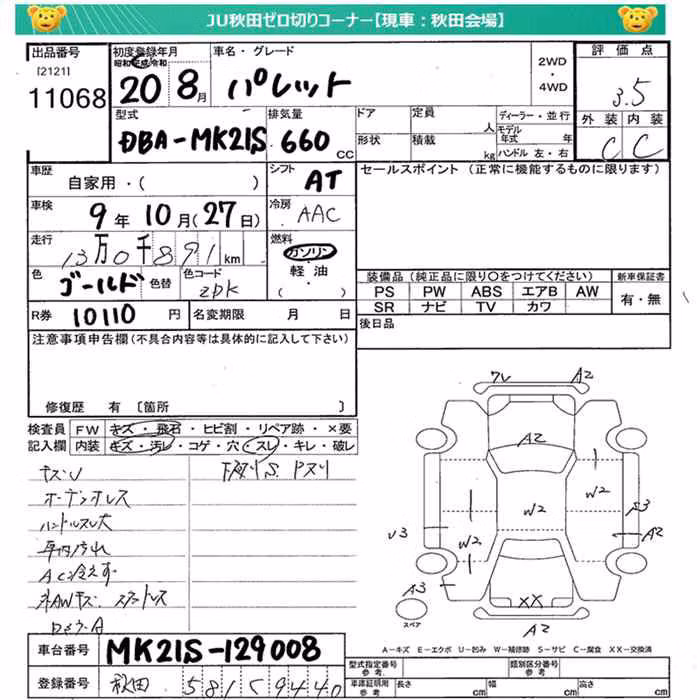 JU秋田ゼロ切りコーナー【現車：秋田会場】
出品番号
[2121]
11068
初度登録年月
昭和 平成 令和
20 8月
車名・グレード
パレット
2WD
・
4WD
評価点
3.5
外装 内装
C C
型式
DBA-MK21S
排気量
660 CC
ドア
形状
定員 人
積載 kg
ディーラー・並行
モデル年式 年
ハンドル 左・右
車歴
自家用・( )
シフト
AT
セールスポイント（正常に機能するものに限ります）
車検
9年 10月(27日)
冷房
AAC
走行
13万0千891km
燃料
ガソリン
・
軽油
( )
色
ゴールド
色替
色コード
ZPK
装備品（純正品に限り○をつけてください）
PS PW ABS エアB AW
SR ナビ TV カワ
新車保証書
有・無
R券 10110 円
名変期限 月 日
後日品
注意事項申告欄（不具合内容等は具体的に記入して下さい）
修復歴 有 [箇所 ]
検査員記入欄
FW キズ・飛石・ヒビ割・リペア跡・×要
内装 キズ・汚レ・コゲ・穴・スレ・キレ・破レ
キズU
下廻りS.
オーディオレス
ハンドルスレ大
車内汚れ
AC冷えず
ワレ A2
A2
W2
W2
W2
W2
U3
A2
A3
XX
A2
スペア
A－キズ E－エクボ U－凹み W－補修跡 S－サビ C－腐食 XX－交換済
車台番号
MK21S-129008
登録番号
秋田 581 C 9440
型式指定番号
参考
類別区分番号
参考
車庫証明用
参考
長さ cm
幅 cm
高さ cm